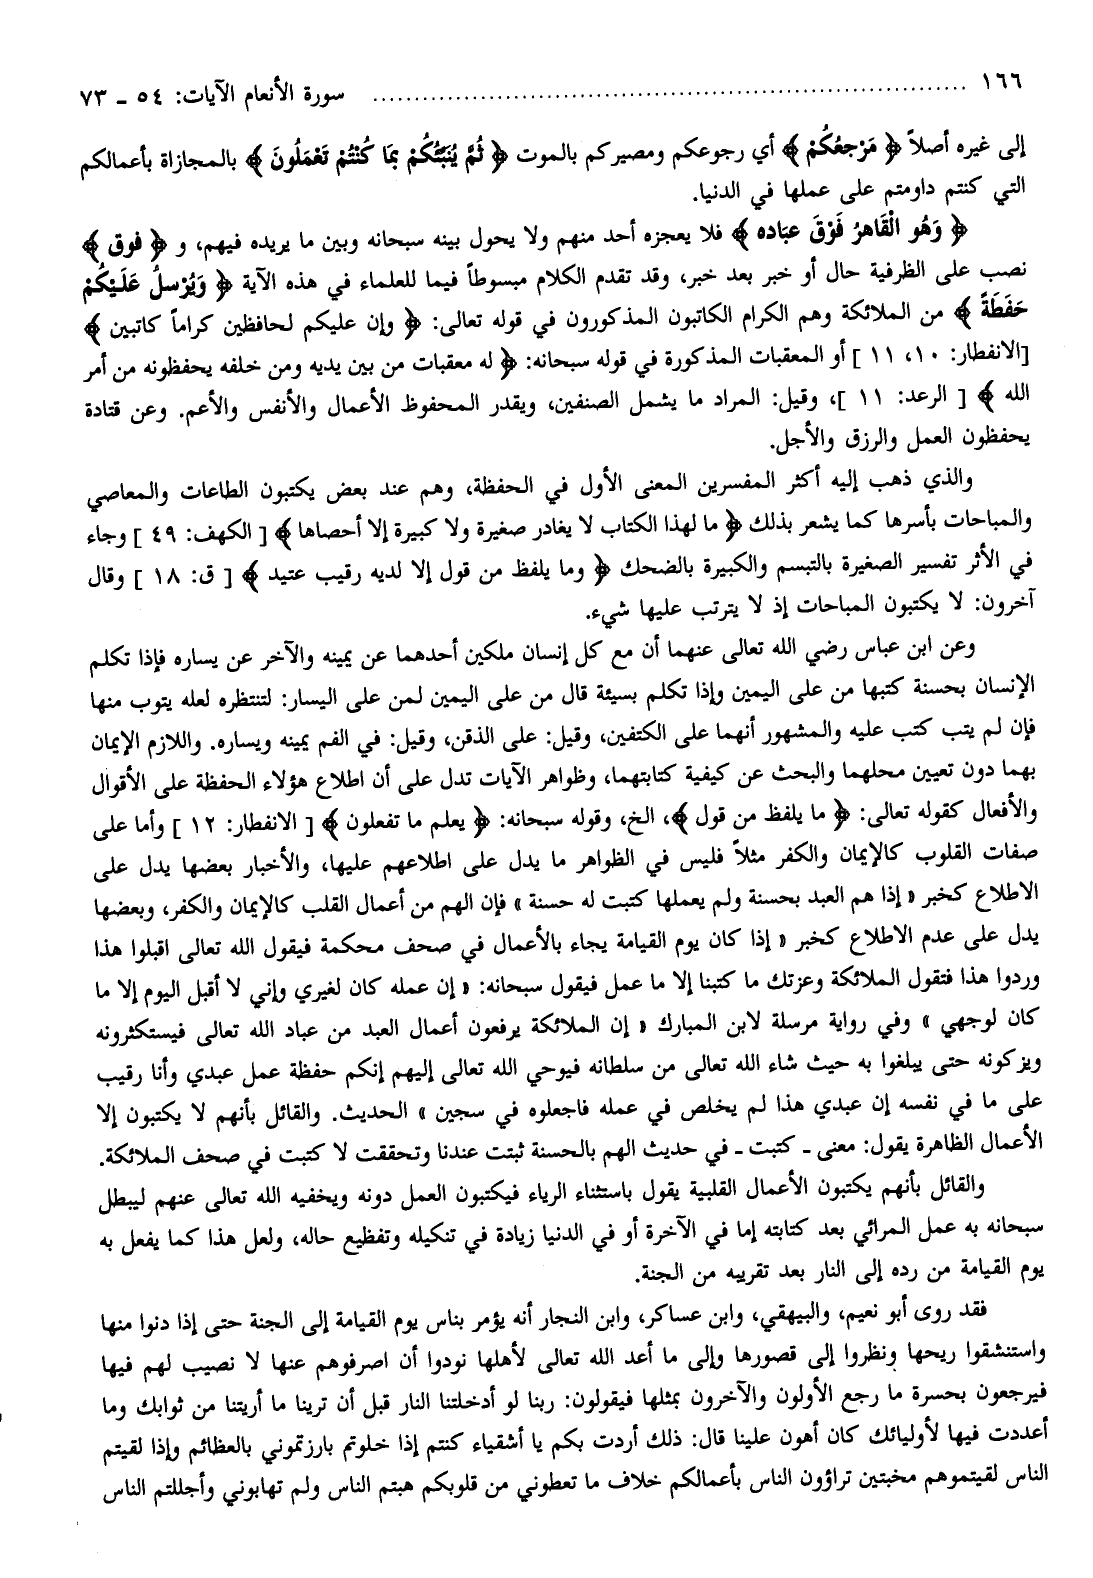 ١٦٦ ........................................................................ سورة الأنعام الآيات: ٥٤ ـ ٧٣
إلى غيره أصلاً ﴿ مَرْجِعُكُمْ ﴾ أي رجوعكم ومصيركم بالموت ﴿ ثُمَّ يُنَبِّئُكُمْ بِمَا كُنْتُمْ تَعْمَلُونَ ﴾ بالمجازاة بأعمالكم
التي كنتم داومتم على عملها في الدنيا.
﴿ وَهُو الْقَاهِرُ فَوْقَ عبَاده ﴾ فلا يعجزه أحد منهم ولا يحول بينه سبحانه وبين ما يريده فيهم، و ﴿ فوق ﴾
نصب على الظرفية حال أو خبر بعد خبر، وقد تقدم الكلام مبسوطاً فيما للعلماء في هذه الآية ﴿ وَيُرْسلُ عَلَيْكُمْ
حَفَظَةً ﴾ من الملائكة وهم الكرام الكاتبون المذكورون في قوله تعالى: ﴿ وإن عليكم لحافظين كراماً كاتبين ﴾
[الانفطار: ١٠، ١١ ] أو المعقبات المذكورة في قوله سبحانه: ﴿ له معقبات من بين يديه ومن خلفه يحفظونه من أمر
الله ﴾ [ الرعد: ١١ ]، وقيل: المراد ما يشمل الصنفين، ويقدر المحفوظ الأعمال والأنفس والأعم. وعن قتادة
يحفظون العمل والرزق والأجل.
والذي ذهب إليه أكثر المفسرين المعنى الأول في الحفظة، وهم عند بعض يكتبون الطاعات والمعاصي
والمباحات بأسرها كما يشعر بذلك ﴿ ما لهذا الكتاب لا يغادر صغيرة ولا كبيرة إلا أحصاها ﴾ [ الكهف: ٤٩ ] وجاء
في الأثر تفسير الصغيرة بالتبسم والكبيرة بالضحك ﴿ وما يلفظ من قول إلا لديه رقيب عتيد ﴾ [ ق: ١٨ ] وقال
آخرون: لا يكتبون المباحات إذ لا يترتب عليها شيء.
وعن ابن عباس رضي الله تعالى عنهما أن مع كل إنسان ملكين أحدهما عن يمينه والآخر عن يساره فإذا تكلم
الإنسان بحسنة كتبها من على اليمين وإذا تكلم بسيئة قال من على اليمين لمن على اليسار: لتنتظره لعله يتوب منها
فإن لم يتب كتب عليه والمشهور أنهما على الكتفين، وقيل: على الذقن، وقيل: في الفم يمينه ويساره. واللازم الإيمان
بهما دون تعيين محلهما والبحث عن كيفية كتابتهما، وظواهر الآيات تدل على أن اطلاع هؤلاء الحفظة على الأقوال
والأفعال كقوله تعالى: ﴿ ما يلفظ من قول ﴾، الخ، وقوله سبحانه: ﴿ يعلم ما تفعلون ﴾ [ الانفطار: ١٢ ] وأما على
صفات القلوب كالإيمان والكفر مثلاً فليس في الظواهر ما يدل على اطلاعهم عليها، والأخبار بعضها يدل على
الاطلاع كخبر « إذا هم العبد بحسنة ولم يعملها كتبت له حسنة » فإن الهم من أعمال القلب كالإيمان والكفر، وبعضها
يدل على عدم الاطلاع كخبر « إذا كان يوم القيامة يجاء بالأعمال في صحف محكمة فيقول الله تعالى اقبلوا هذا
وردوا هذا فتقول الملائكة وعزتك ما كتبنا إلا ما عمل فيقول سبحانه: « إن عمله كان لغيري وإني لا أقبل اليوم إلا ما
كان لوجهي » وفي رواية مرسلة لابن المبارك « إن الملائكة يرفعون أعمال العبد من عباد الله تعالى فيستكثرونه
ويزكونه حتى يبلغوا به حيث شاء الله تعالى من سلطانه فيوحي الله تعالى إليهم إنكم حفظة عمل عبدي وأنا رقيب
على ما في نفسه إن عبدي هذا لم يخلص في عمله فاجعلوه في سجين » الحديث. والقائل بأنهم لا يكتبون إلا
الأعمال الظاهرة يقول: معنى ـ كتبت ـ في حديث الهم بالحسنة ثبتت عندنا وتحققت لا كتبت في صحف الملائكة.
والقائل بأنهم يكتبون الأعمال القلبية يقول باستثناء الرياء فيكتبون العمل دونه ويخفيه الله تعالى عنهم ليبطل
سبحانه به عمل المرائي بعد كتابته إما في الآخرة أو في الدنيا زيادة في تنكيله وتفظيع حاله، ولعل هذا كما يفعل به
يوم القيامة من رده إلى النار بعد تقريبه من الجنة.
فقد روى أبو نعيم، والبيهقي، وابن عساكر، وابن النجار أنه يؤمر بناس يوم القيامة إلى الجنة حتى إذا دنوا منها
واستنشقوا ريحها ونظروا إلى قصورها وإلى ما أعد الله تعالى لأهلها نودوا أن اصرفوهم عنها لا نصيب لهم فيها
فيرجعون بحسرة ما رجع الأولون والآخرون بمثلها فيقولون: ربنا لو أدخلتنا النار قبل أن ترينا ما أريتنا من ثوابك وما
أعددت فيها لأوليائك كان أهون علينا قال: ذلك أردت بكم يا أشقياء كنتم إذا خلوتم بارزتموني بالعظائم وإذا لقيتم
الناس لقيتموهم مخبتين تراؤون الناس بأعمالكم خلاف ما تعطوني من قلوبكم هبتم الناس ولم تهابوني وأجللتم الناس